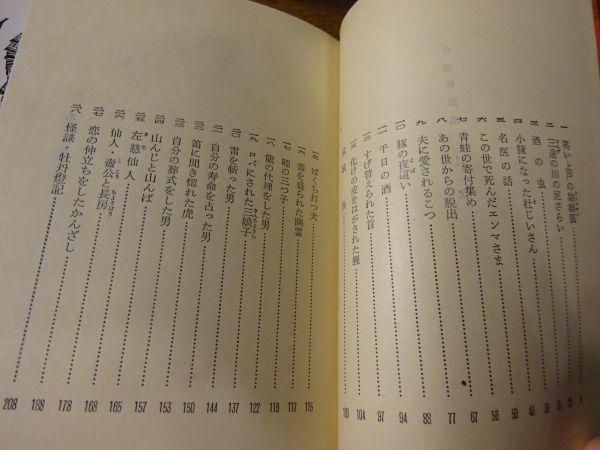 三途の川の泥さらい
三 酒の虫
四 小豚になった杜じいさん
五 名医の話
六 この世で死んだエンマさま 50
七 青蛙の寄付集め 56
八 あの世からの脱出 67
九 夫に愛されるこつ 77
一〇 豚の夜這い 88
一一 千日の酒 94
一二 すげ替えられた首 97
一三 化けの皮をはがされた狸 104
109
一五 ばくち打つ犬 115
一六 毒を盛られた幽霊 117
一七 蛙の三つ子 119
一八 龍の代理をした男 122
一九 ロバにされた三娘子 137
二〇 雷を斬った男 144
二一 自分の寿命を占った男 150
二二 笛に聞き惚れた虎 153
二三 自分の葬式をした男 157
二四 山んじと山んば 165
二五 左慈仙人 168
二六 仙人・壺公と長房 178
二七 恋の仲立ちをしたかんざし 188
二八 怪談・牡丹燈記 208